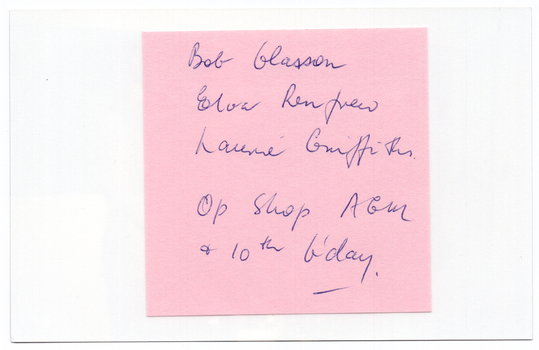 Bob Glasson
Elva Renfrew
Laurie Griffiths.
Op Shop AGM
& 10th b'day.